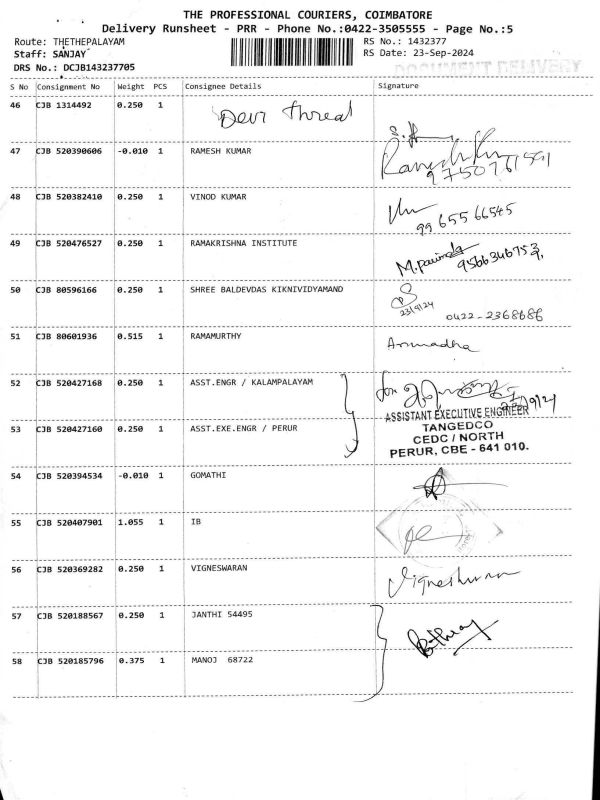 THE PROFESSIONAL COURIERS, COIMBATORE
Delivery Runsheet - PRR - Phone No.:0422-3505555 - Page No.:5
Route: THETHEPALAYAM RS No.: 1432377
Staff: SANJAY RS Date: 23-Sep-2024
DRS No.: DCJB143237705
DOCUMENT DELIVERY
S No Consignment No Weight PCS Consignee Details Signature
46 CJB 1314492 0.250 1 Devi threat
47 CJB 520390606 -0.010 1 RAMESH KUMAR
9750761591
48 CJB 520382410 0.250 1 VINOD KUMAR
99 655 66545
49 CJB 520476527 0.250 1 RAMAKRISHNA INSTITUTE
50 CJB 80596166 0.250 1 SHREE BALDEVDAS KIKNIVIDYAMAND
23/9/24 0422-2368686
51 CJB 80601936 0.515 1 RAMAMURTHY Anuradha
52 CJB 520427168 0.250 1 ASST.ENGR / KALAMPALAYAM for
ASSISTANT EXECUTIVE ENGINEER
53 CJB 520427160 0.250 1 ASST.EXE.ENGR / PERUR TANGEDCO
CEDC / NORTH
PERUR, CBE - 641 010.
54 CJB 520394534 -0.010 1 GOMATHI
55 CJB 520407901 1.055 1 IB
56 CJB 520369282 0.250 1 VIGNESWARAN
57 CJB 520188567 0.250 1 JANTHI 54495
58 CJB 520185796 0.375 1 MANOJ 68722